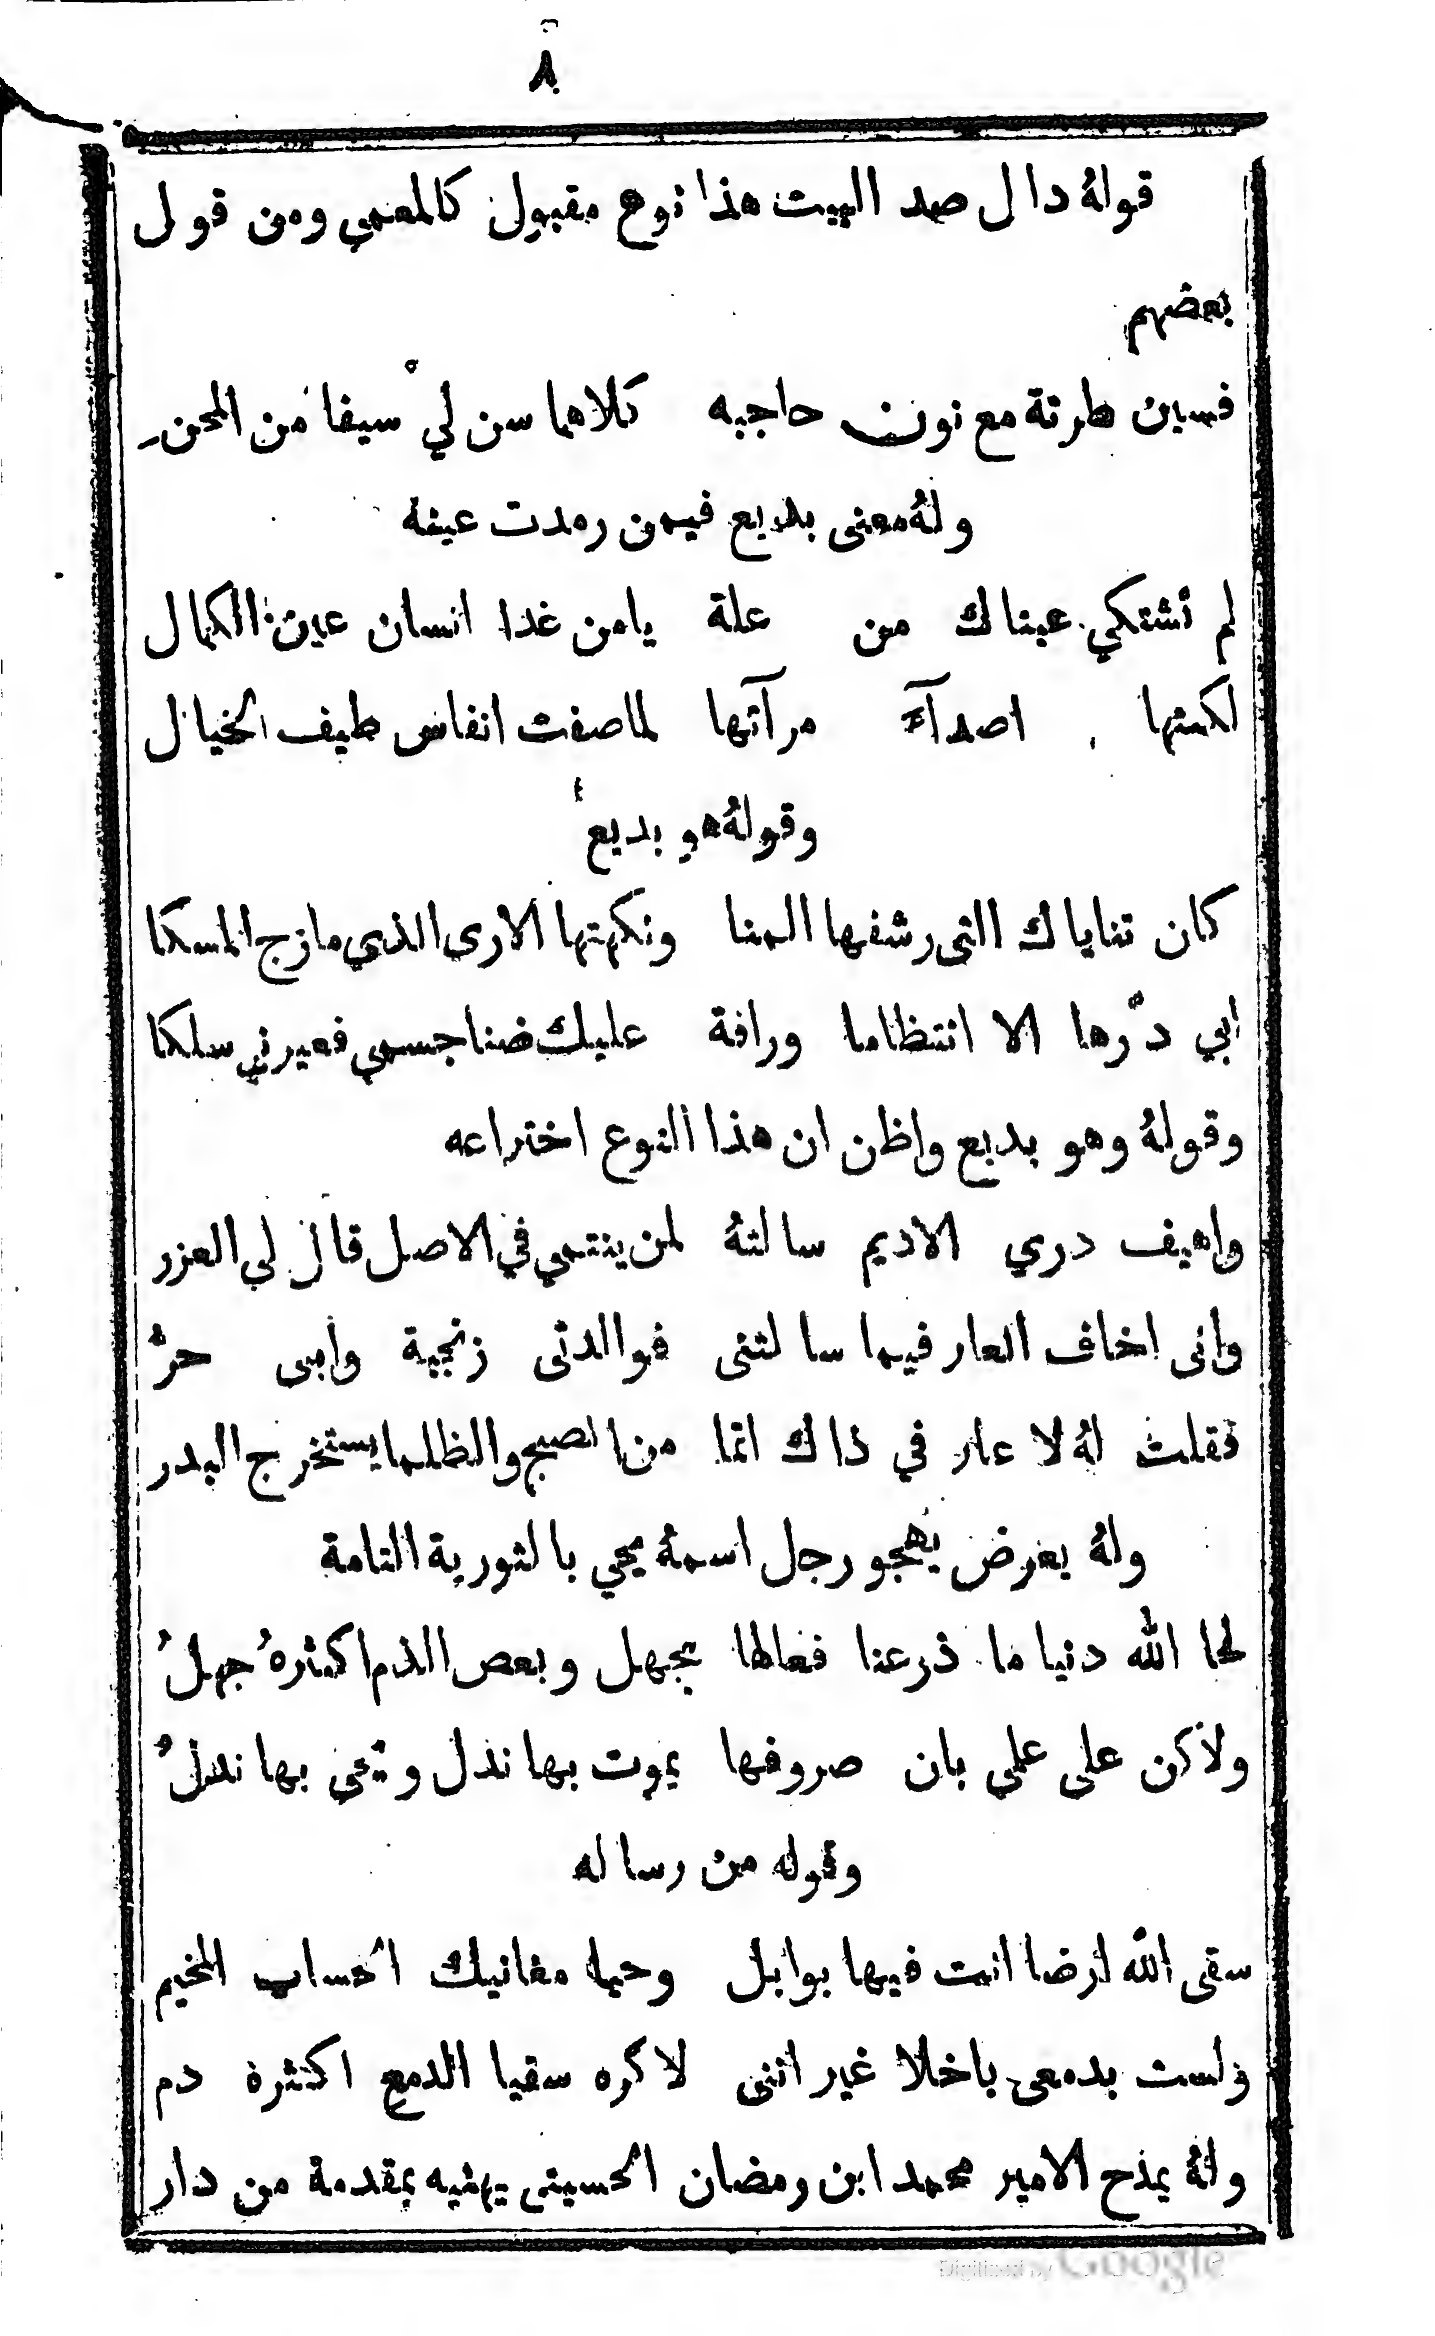 ٨
قولهُ دال صد البيت هذا نوع مقبول كالمعمي ومن قول
بعضهم
فسين طرتة مع نون حاجبه كلاهما سن لي سيفا من المحن
ولهُ معنى بديع فيمن رمدت عينهُ
لم تشتكي عيناك من علة يامن غدا انسان عين الكمال
لكمنها اصدآءَ مرآتها لما صفت انفاس طيف الخيال
وقولهُ هو بديع
كان تناياك التى رشفها المنا ونكهتها الارى الذي مازج المسكا
ابي دّرها الا انتظاما ورافة عليك ضنا جسمي فعيرني سلكا
وقولهُ وهو بديع واظن ان هذا النوع اختراعه
واهيف دري الاديم سالتهُ لمن ينتمي في الاصل قال لي العزر
وانى اخاف العار فيما سالتنى فوالدتى زنجية وابى حرٌ
فقلت لهُ لا عار في ذاك انما من الصبح والظلما يستخرج البدر
ولهُ يعرض بهجو رجل اسمهُ يحي بالتورية التامة
لحا الله دنيا ما ذرعنا فعالها بجهل وبعص الذم اكثرهُ جهلُ
ولاكن على علمي بان صروفها يموت بها نذل ويحى بها نذلٌ
وقوله من رساله
سقى الله ارضا انت فيها بوابل وحيا مغانيك الحساب المخيم
ولست بدمعى باخلا غير اننى لاكره سقيا الدمع اكثرة دم
ولهُ يمدح الامير محمد ابن رمضان الحسينى يهنيه بمقدمة من دار
Digitized by Google